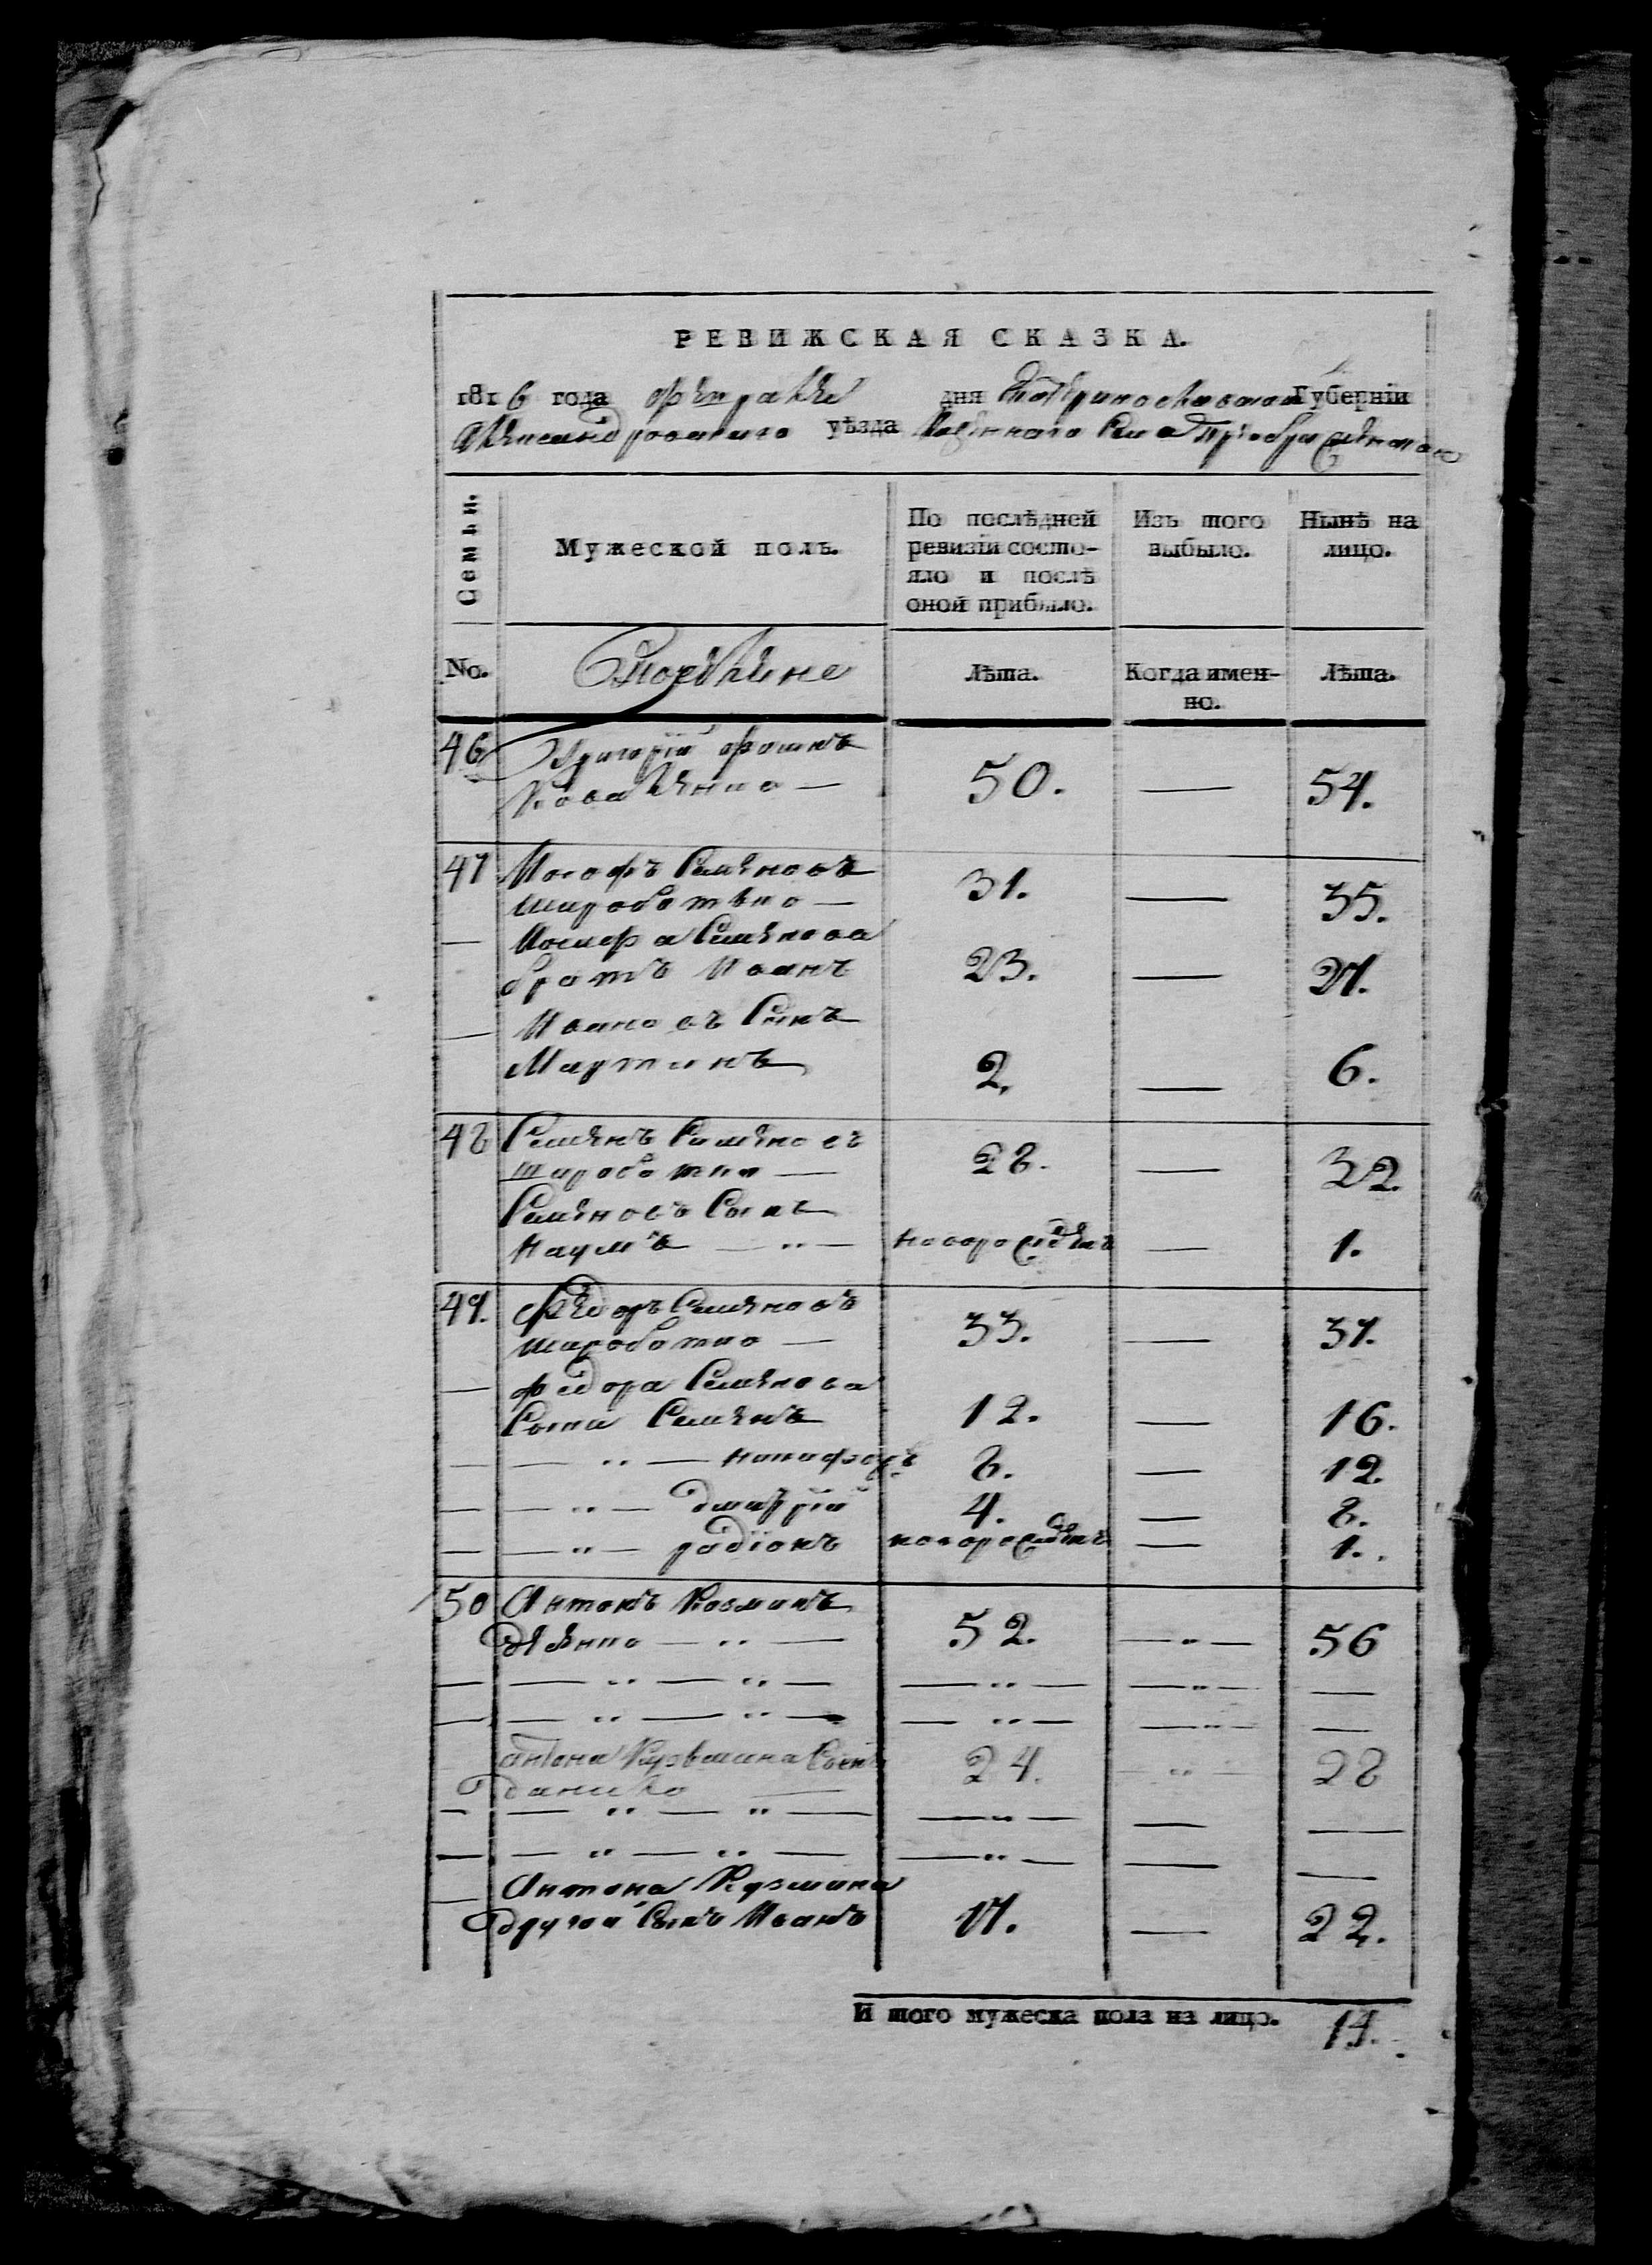 РЕВИЖСКАЯ СКАЗКА.
1816 года февраля дня Екатеринославской Губерніи
Александровскаго уѣзда Казеннаго Села Преображенскаго
Семьи.
Мужеской полъ.
По послѣдней
ревизіи состо-
яло и послѣ
оной прибыло.
Изъ того
выбыло.
Нынѣ на
лицо.
No.
Лѣта.
Когда имен-
но.
Лѣта.
46 Григорій Фоминъ
Коваленко — 50. — 54.
47 Иосифъ Семеновъ
— 31. — 35.
— Иосифа Семенова
братъ Иванъ 23. — 27.
— Ивановъ Сынъ
Мартинъ 2. — 6.
48 Семенъ Семеновъ
— 28. — 32.
Семеновъ Сынъ
Наумъ — „ — новорожденъ — 1.
49. Федоръ Семеновъ
— 33. — 37.
— Федора Семенова
Сыни Семенъ 12. — 16.
— — „ — Никифоръ 8. — 12.
— — „ — Дмитрій 4. — 8.
— — „ — Родіонъ новорожденъ — 1.
50 Антонъ Козминъ
— „ — 52. — „ — 56
— — „ — „ — — „ — — „ — —
— — „ — „ — — „ — — „ — —
Антона Кузьмина Сынъ
Данило — 24. — „ — 28
— — „ — „ — — „ — — —
— — „ — „ — — „ — — —
— Антона Кузмина
другой Сынъ Иванъ 17. — 22.
И того мужеска пола на лицо. 14.